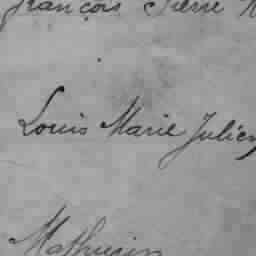 François Pierre
Louis Marie Julien
Mathurin